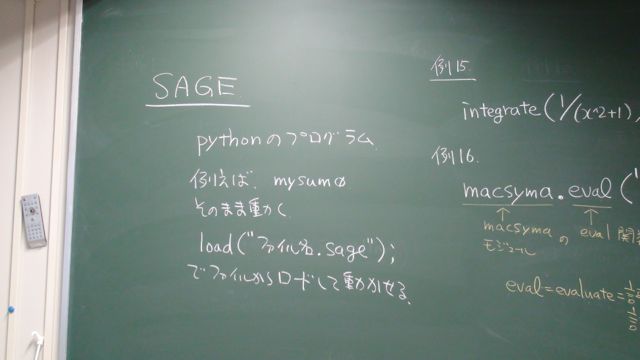 SAGE
pythonのプログラム
例えば、mysumの
そのまま動く
load("ファイル名.sage");
でファイルからロードして動かせる。
例15
integrate(1/(x^2+1),
例16.
macsyma.eval("
macsyma の eval 関
モジュール
eval = evaluate =